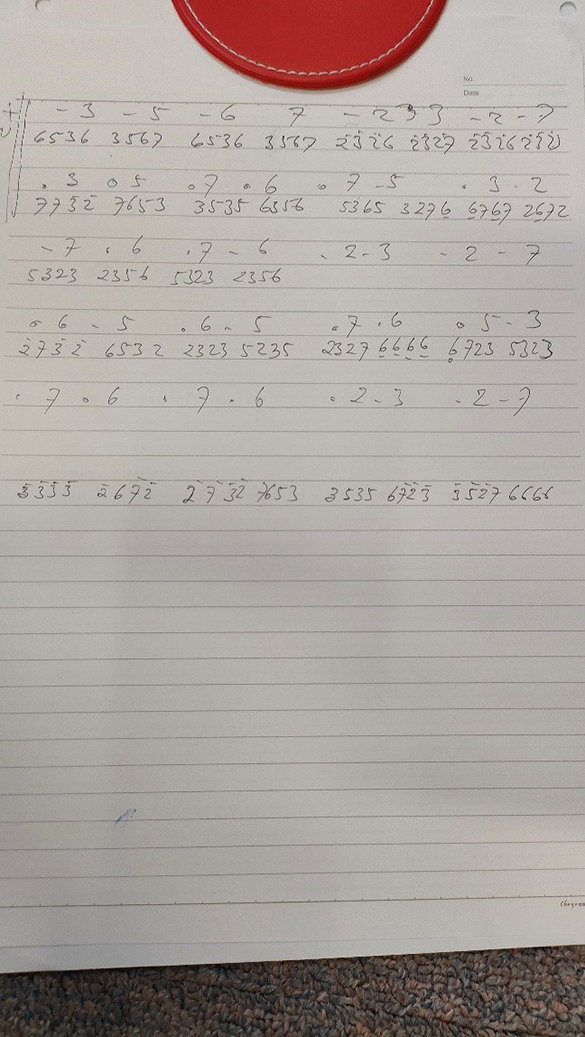 No.
Date
- 3 - 5 - 6 7 - 2 3 3 - 2 - 7
6536 3567 6536 3567 2326 2327 2326 232
. 3 . 5 . 7 . 6 . 7 - 5 . 3 . 2
7732 7653 3535 6356 5365 3276 6767 2672
- 7 . 6 . 7 - 6 . 2 - 3 - 2 - 7
5323 2356 5323 2356
. 6 - 5 . 6 - 5 . 7 . 6 . 5 - 3
2732 6532 2323 5235 2327 6666 6723 5323
. 7 . 6 . 7 . 6 . 2 - 3 . 2 - 7
3333 2672 2732 7653 3535 6723 3527 6666